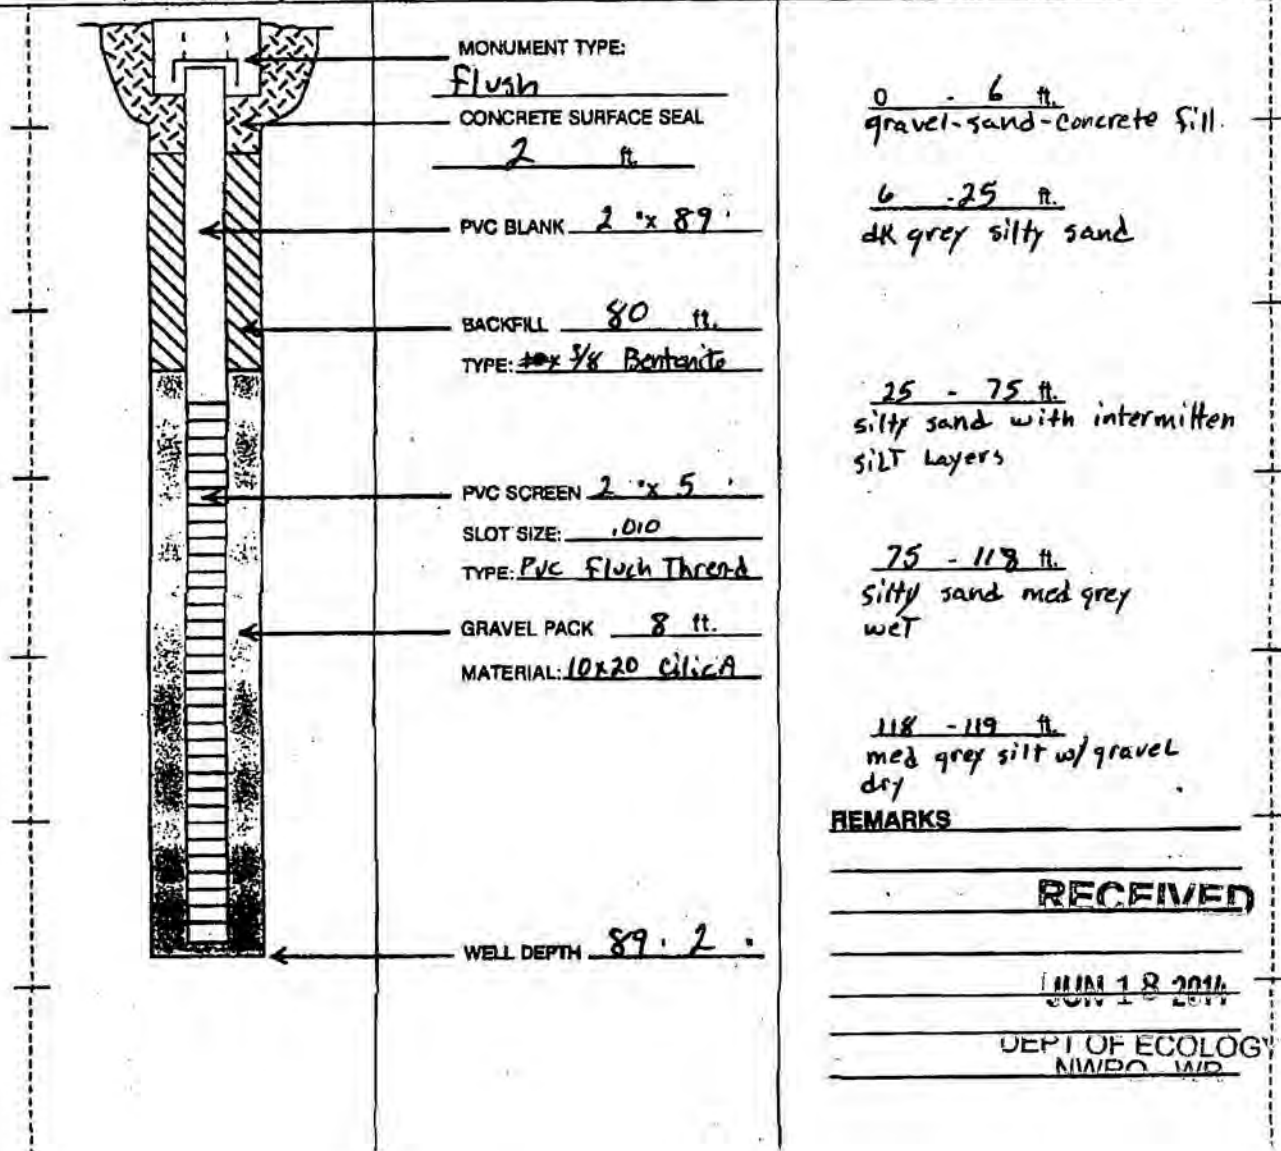 MONUMENT TYPE:
Flush
CONCRETE SURFACE SEAL
2 ft
PVC BLANK 2 "x 89 '
BACKFILL 80 ft.
TYPE: 3/8 Bentonite
PVC SCREEN 2 "x 5 '
SLOT SIZE: .010
TYPE: Pvc Flush Thread
GRAVEL PACK 8 ft.
MATERIAL: 10x20 CilicA
WELL DEPTH 89. 2 "
0 - 6 ft.
gravel-sand-concrete fill.
6 - 25 ft.
dk grey silty sand
25 - 75 ft.
silty sand with intermitten
siLT Layers
75 - 118 ft.
silty sand med grey
weT
118 - 119 ft.
med grey silt w/ graveL
dry
REMARKS
RECEIVED
JUN 18 2014
DEPT OF ECOLOGY
NWRO WR